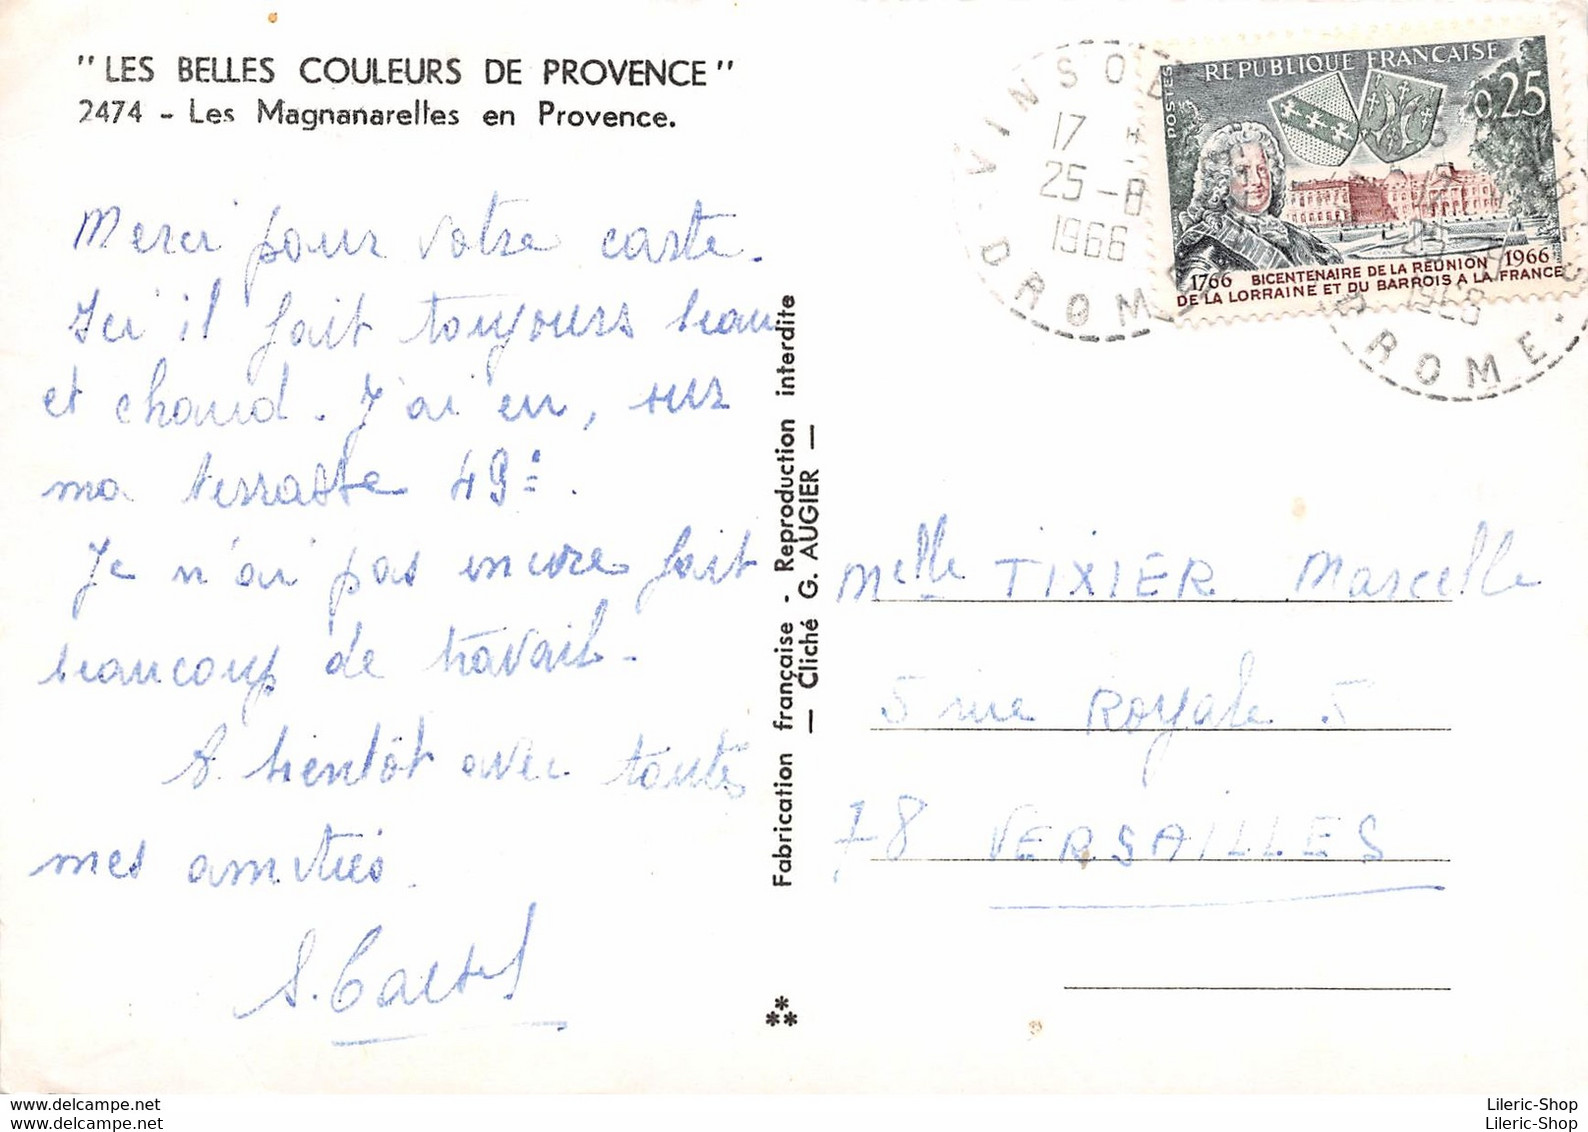 "LES BELLES COULEURS DE PROVENCE"
2474 - Les Magnanarelles en Provence.
Merci pour votre carte.
Ici il fait toujours beau
et chaud. J'ai eu, sur
ma terrasse 49°.
Je n'ai pas encore fait
beaucoup de travail.
A bientôt avec toutes
mes amitiés.
Fabrication française - Reproduction interdite
— Cliché G. AUGIER —
VINSOB
17
25-8
1966
DROME
POSTES
REPUBLIQUE FRANÇAISE
0,25
1766 BICENTENAIRE DE LA REUNION 1966
DE LA LORRAINE ET DU BARROIS A LA FRANCE
1966
DROME
Melle TIXIER Marcelle
5 rue Royale 5
78 VERSAILLES
www.delcampe.net
www.delcampe.net
Lileric-Shop
Lileric-Shop